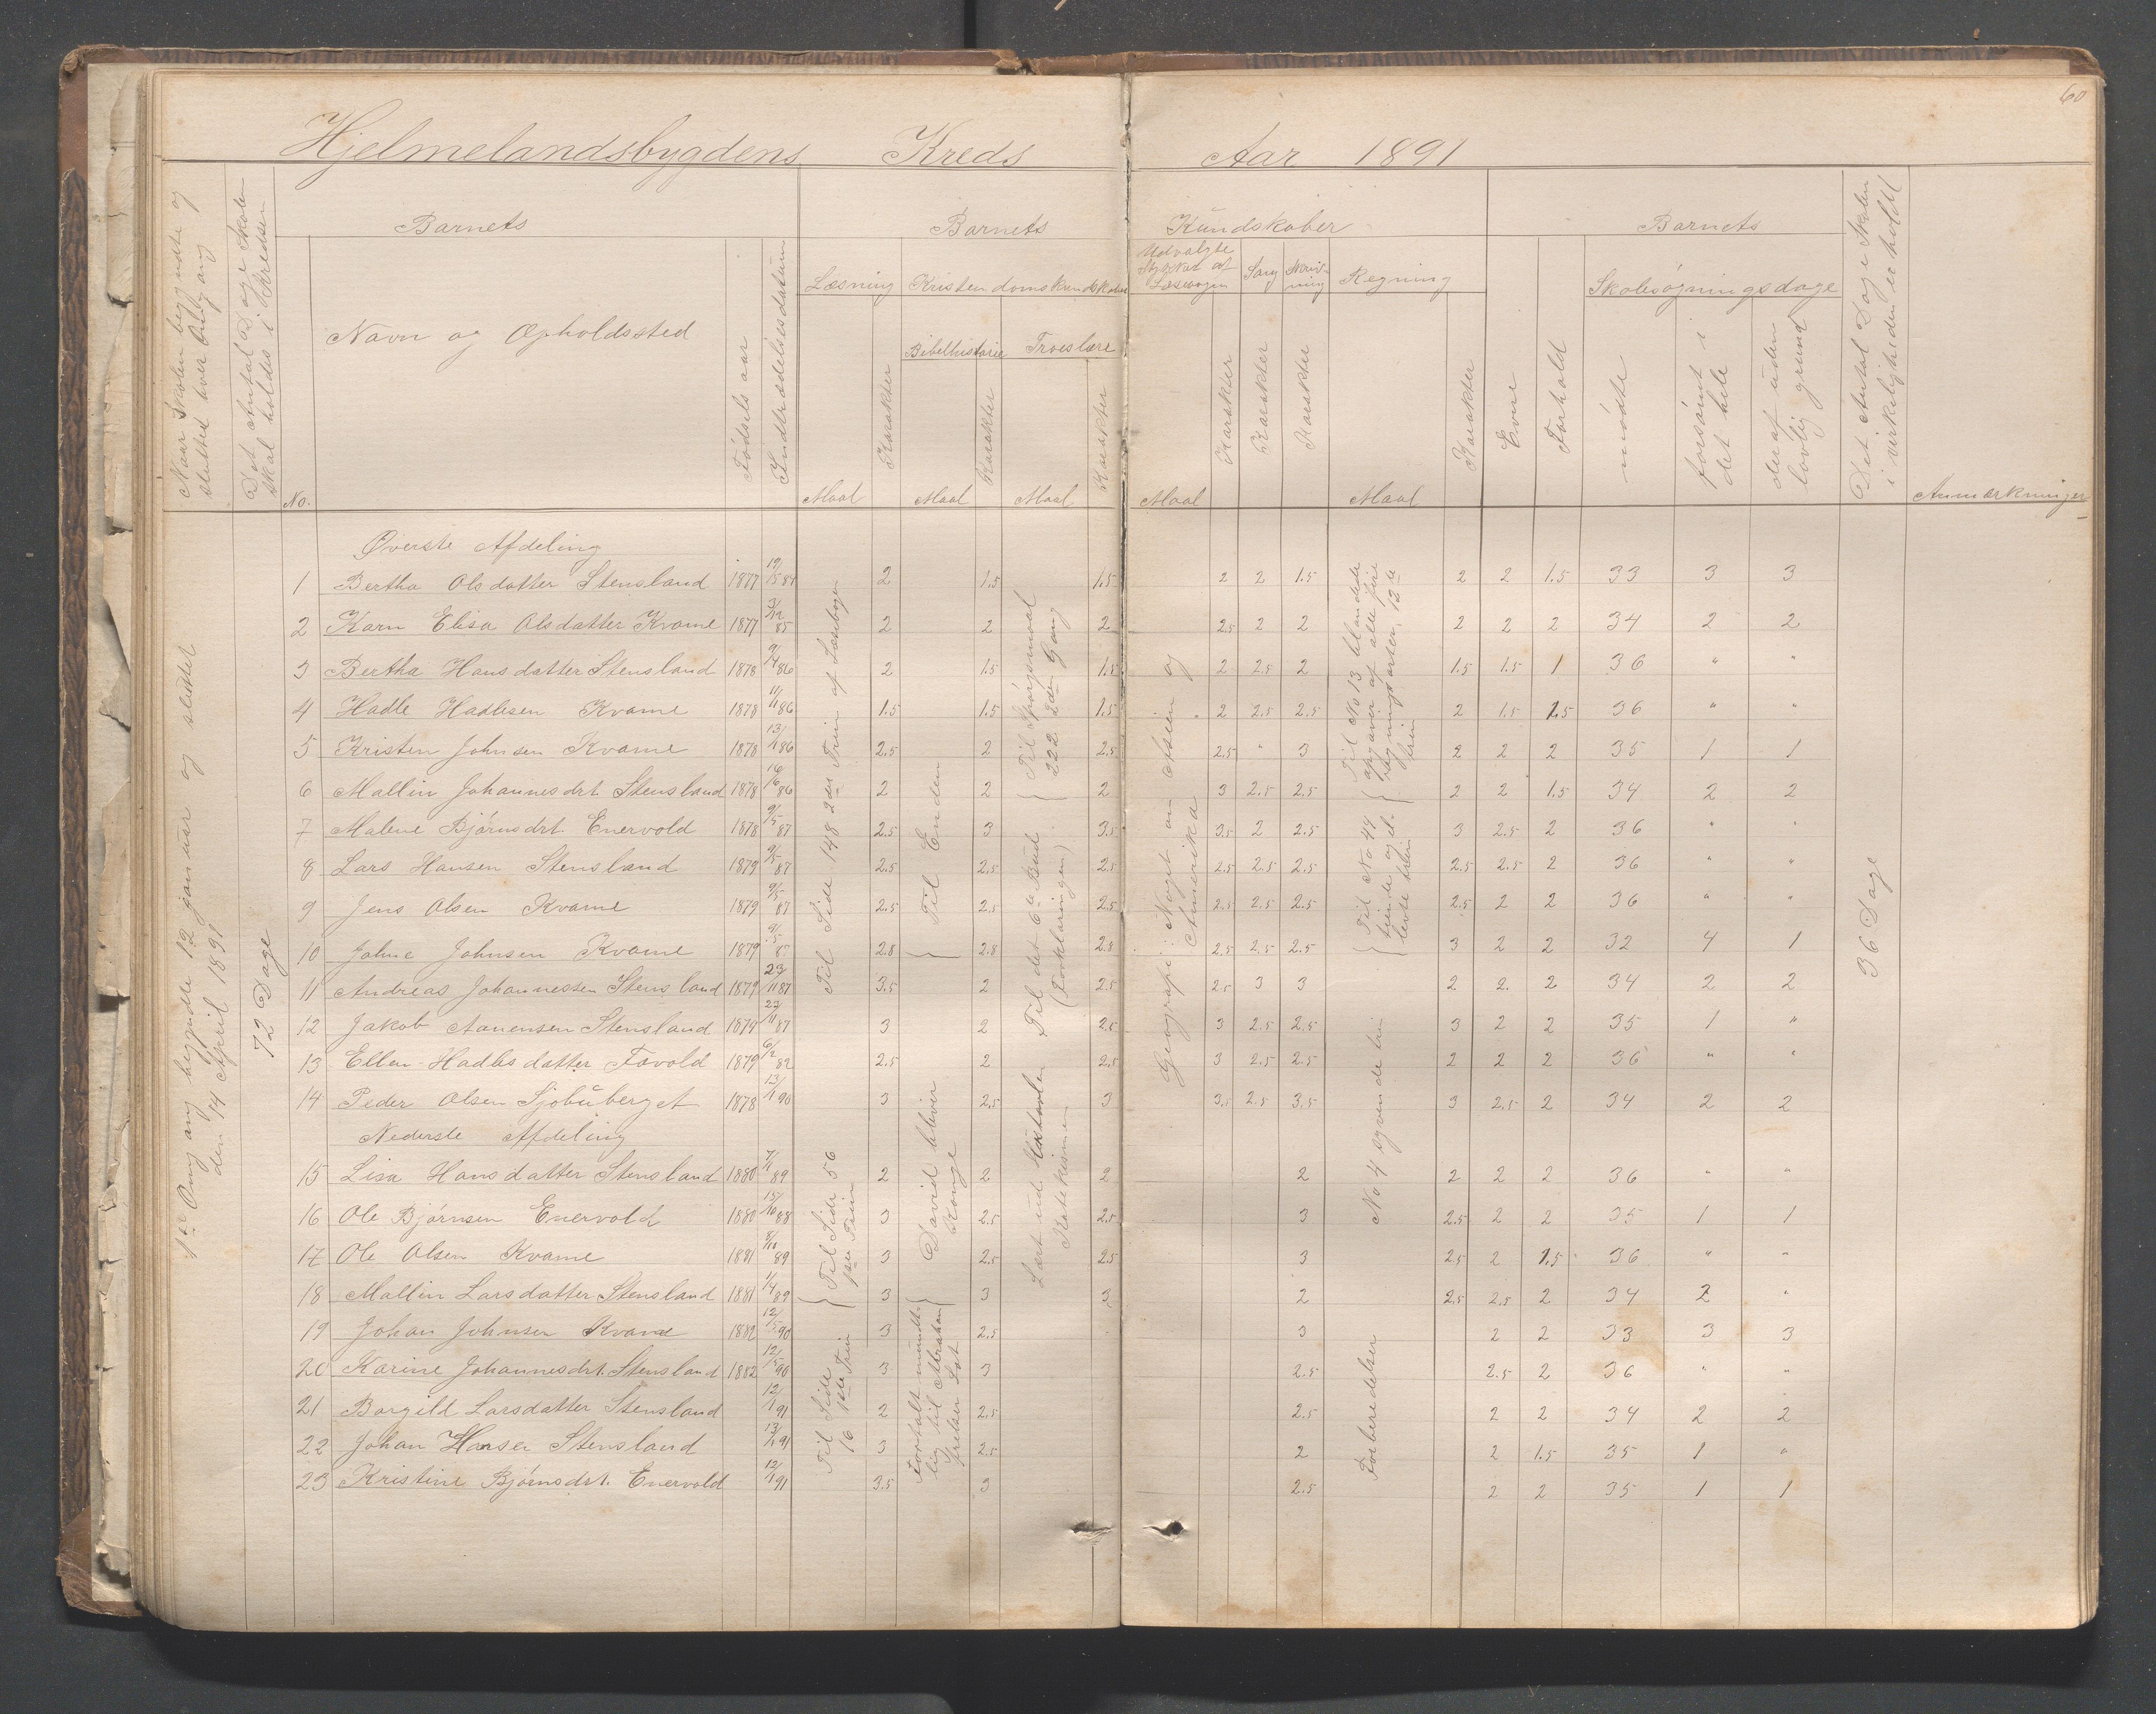 60
Hjelmelandsbygdens Kreds Aar 1891
Naar Skolen begyndte og sluttet hver Omgang
Det Antal Dage Skolen skal holdes i Kredsen
No.
Barnets
Navn og Opholdssted
Fødsels aar
Indtrædelsesdatum
Barnets Kundskaber
Læsning
Maal
Karakter
Kristendomskundskab
Bibelhistorie
Maal
Karakter
Troeslære
Maal
Karakter
Udvalgte Stykker af Læsebogen
Maal
Karakter
Sang
Karakter
Skrivning
Karakter
Regning
Maal
Karakter
Barnets
Evne
Forhold
Skolesøgningsdage
mødte
forsømt i det hele
deraf uden lovlig grund
Det Antal Dage Skolen i virkeligheden er holdt
Anmærkninger
1ste Omgang begyndte 12 januar og sluttet den 14 April 1891
72 Dage
Øverste Afdeling
1 Bertha Olsdatter Stensland 1877 2 1.5 1.5 2 2 1.5 2 2 1.5 33 3 3
2 Karn Elisa Olsdatter Kvame 1877 3/12 85 2 2 2 2.5 2 2 2 2 2 34 2 2
3 Bertha Hansdatter Stensland 1878 9/4 86 2 1.5 1.5 2 2.5 2 1.5 1.5 1 36 " "
4 Hadle Hadlesen Kvame 1878 11/11 86 1.5 1.5 1.5 2 2.5 2.5 2 1.5 1.5 36 " "
5 Kristen Johnsen Kvame 1878 13/1 86 2.5 2 2.5 2.5 " 3 2 2 2 35 1 1
6 Mallin Johannesdrt Stensland 1878 16/6 86 2 2 2 3 2.5 2.5 2 2 1.5 34 2 2
7 Malene Bjørnsdrt. Enervold 1878 9/5 87 2.5 3 3.5 3.5 2 2.5 3 2.5 2 36 " "
8 Lars Hansen Stensland 1879 9/5 87 2.5 2.5 2.5 2.5 2.5 2.5 2.5 2.5 2 36 " "
9 Jens Olsen Kvame 1879 9/5 87 2.5 2.5 2.5 2.5 2.5 2.5 2.5 2 2 36 " "
10 Johne Johnsen Kvame 1879 2.8 2.8 2.8 2.5 2.5 2.5 3 2 2 32 4 1
11 Andreas Johannessen Stensland 1879 23/11 87 3.5 2 2.5 2.5 3 3 2 2 2 34 2 2
12 Jakob Aanensen Stensland 1879 22/11 87 3 2 2.5 3 2.5 2.5 3 2 2 35 1 "
13 Ellen Hadlesdatter Favold 1879 6/2 82 2.5 2 2.5 3 2.5 2.5 2 2 2 36 " "
14 Peder Olsen Sjobuberget 1878 13/1 90 3 2.5 3 3.5 2.5 3.5 3 2.5 2 34 2 2
Nederste Afdeling
15 Lisa Hansdatter Stensland 1880 7/1 89 2 2 2 2 2 2 2 36 " "
16 Ole Bjørnsen Enervold 1880 15/10 88 3 2.5 2.5 3 2.5 2 2 35 1 1
17 Ole Olsen Kvame 1881 8/10 89 3 2.5 2.5 3 2.5 2 1.5 36 " "
18 Mallin Larsdatter Stensland 1881 1/4 89 3 3 3 2 2.5 2.5 2 34 2 "
19 Johan Johnsen Kvame 1882 12/5 90 3 2.5 3 2 2 33 3 3
20 Karine Johannesdrt. Stensland 1882 12/5 90 3 3 2.5 2.5 2 36 " "
21 Borgild Larsdatter Stensland 12/1 91 2 2.5 2.5 2 2 34 2 2
22 Johan Hansen Stensland 13/1 91 3 2.5 2 2 1.5 35 1 "
23 Kristine Bjørnsdrt. Enervold 12/1 91 3.5 3 2.5 2 2 35 1 1
Til Side 148 2det Trin af Læsebogen
Til Side 56 1ste Trin
Til Side 16 1ste Trin
Til Enden
David bliver Konge
Fortalt mundtlig til Abraham frelser Lot
Til Spørgsmaal 222 2den Gang
Til det 6te Bud (Forklaringen)
Lært ud Katekismen
Geografi: Noget om Asien og Amerika
Til No 13 blandede opgaver af alle fire regningsarter, 13de trin
Til No 44 tiende og ellevte trin
No 4 syvende trin
Forberedelser
36 Dage